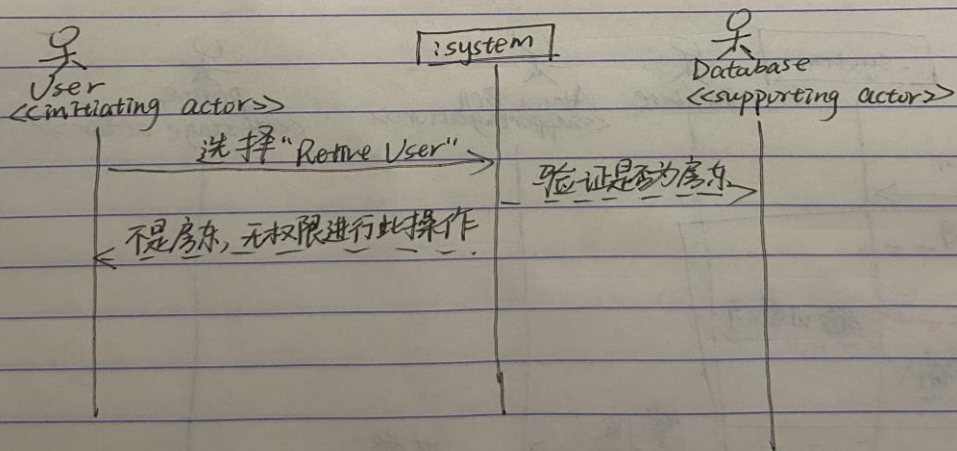 :system
User
<<initiating actor>>
Database
<<supporting actor>>
选择"Retive User"
验证是否为房东
不是房东,无权限进行此操作